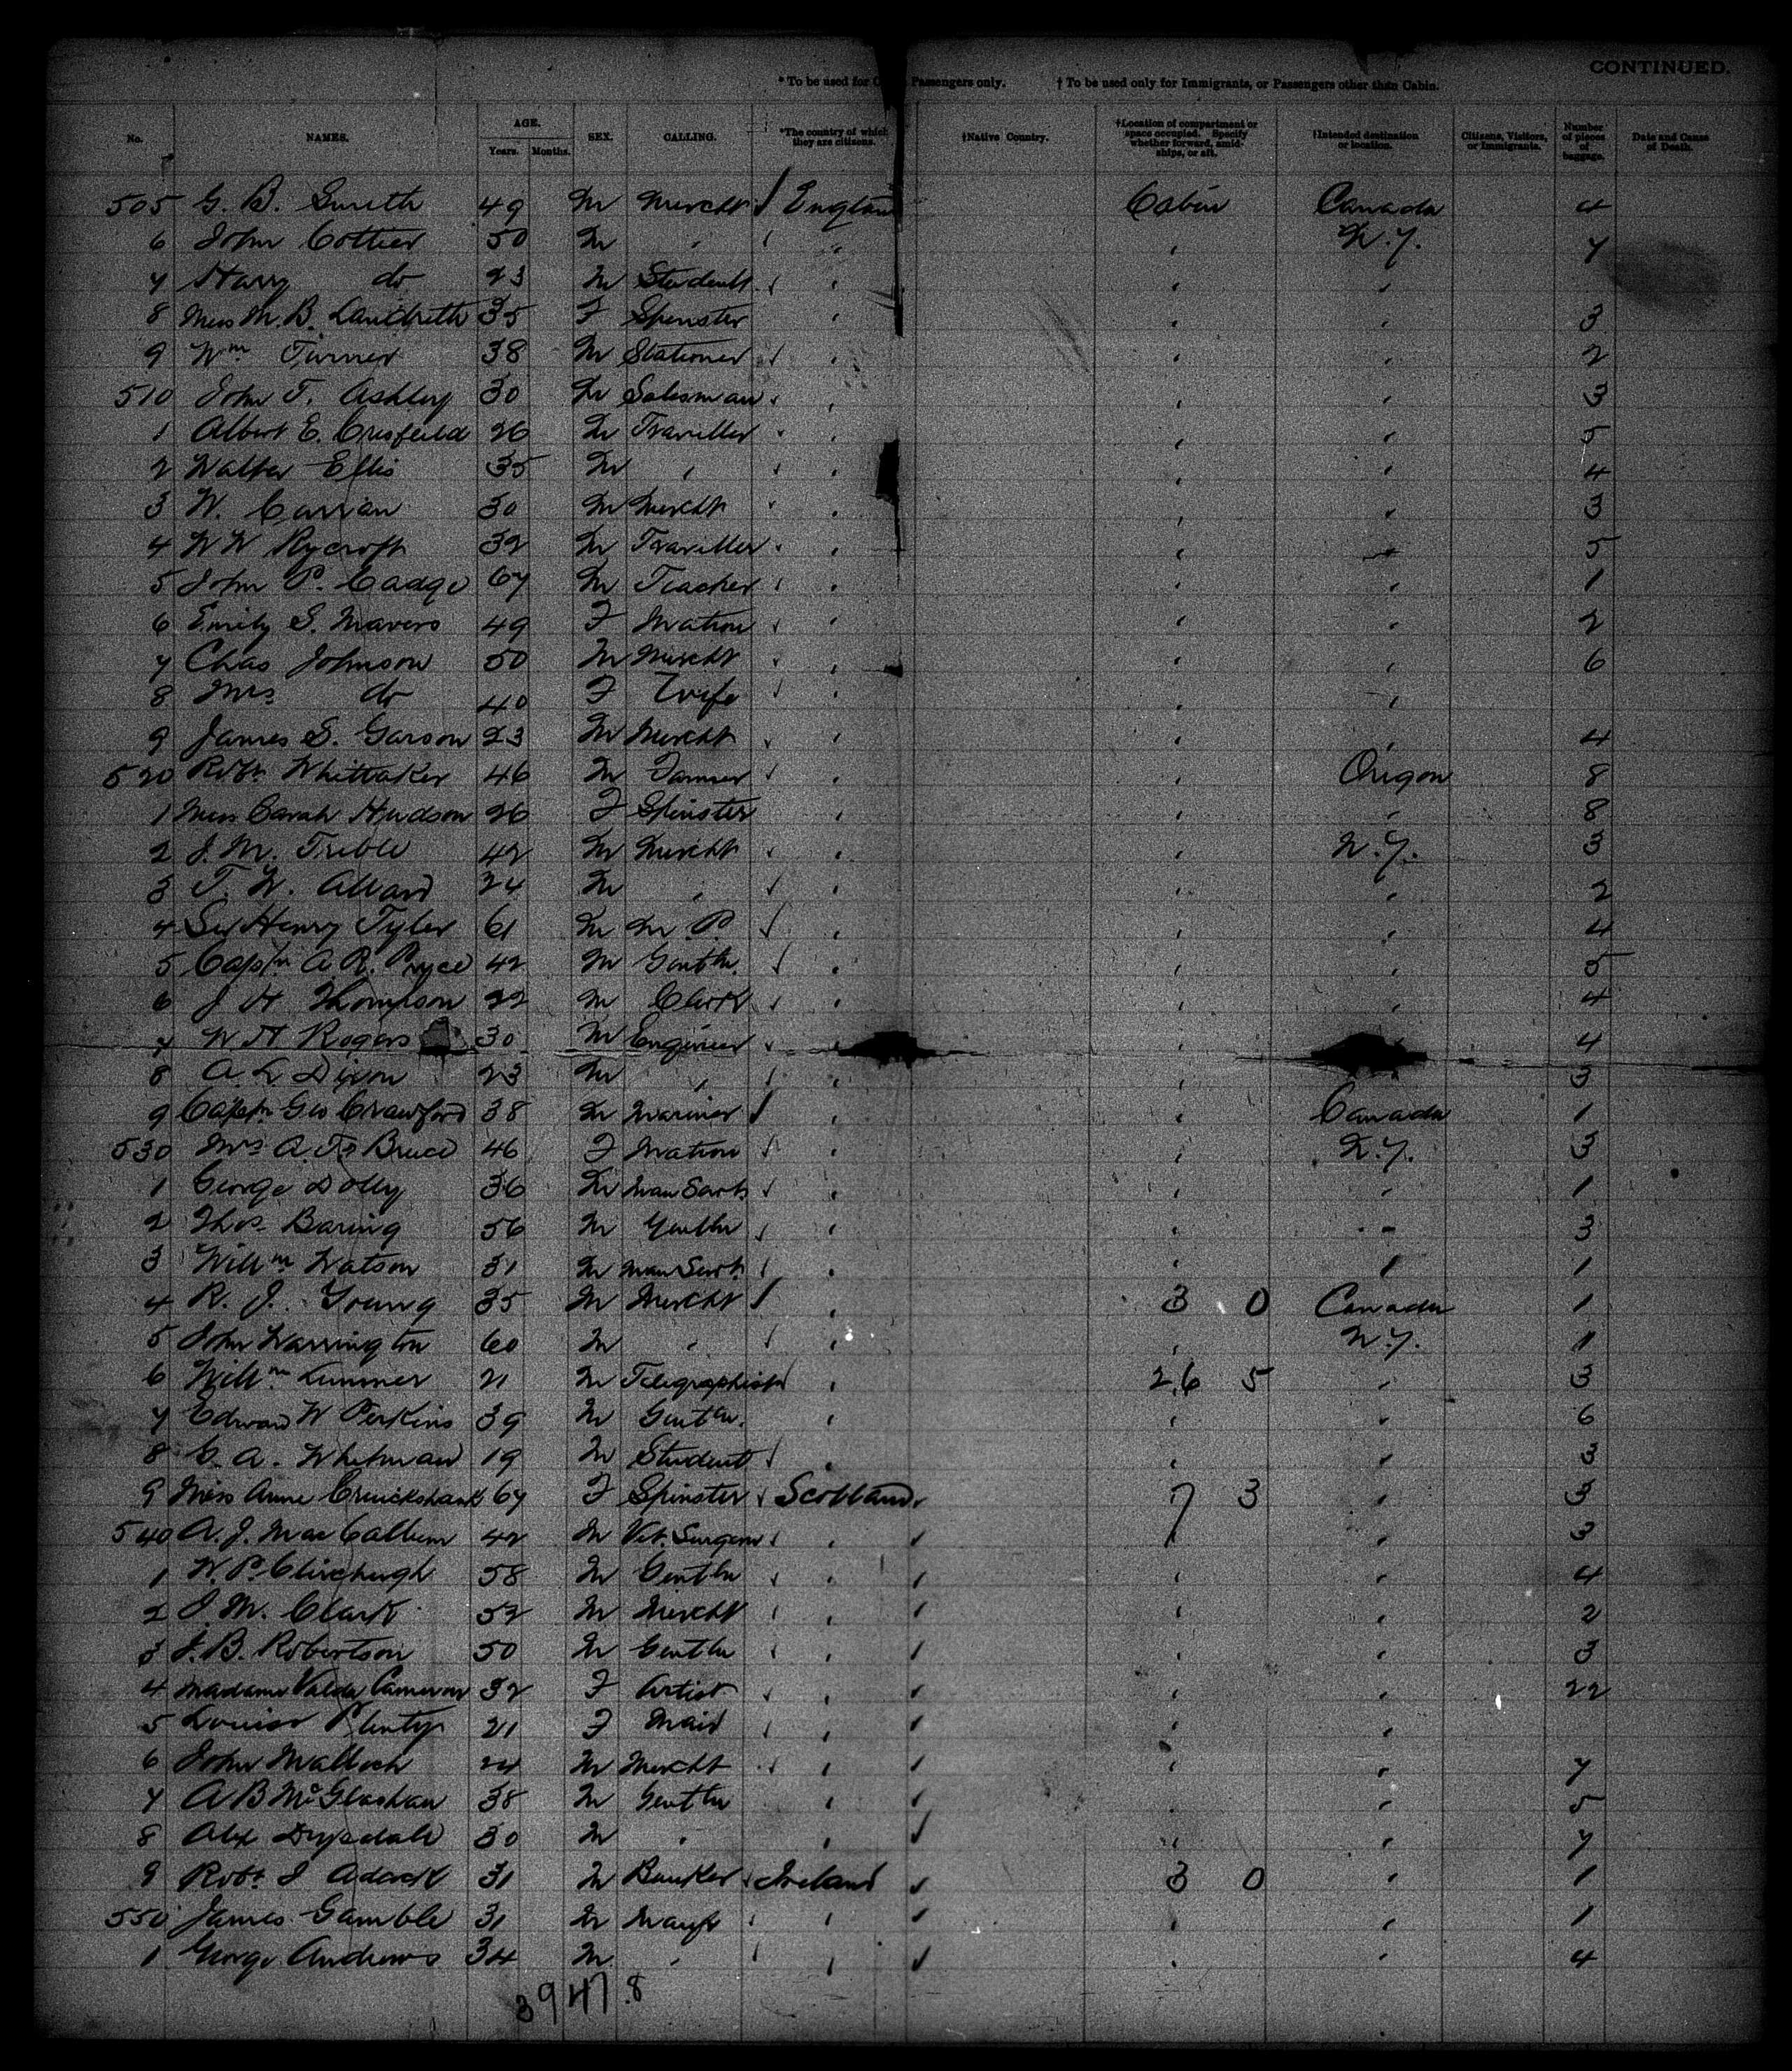 CONTINUED.
* To be used for C Passengers only. † To be used only for Immigrants, or Passengers other than Cabin.
No. NAMES. AGE. Years. Months. SEX. CALLING. *The country of which they are citizens. †Native Country. †Location of compartment or space occupied. Specify whether forward, amidships, or aft. †Intended destination or location. Citizens, Visitors, or Immigrants. Number of pieces of baggage. Date and Cause of Death.
505 G. B. Smith 49 M Mercht England Cabin Canada 4
6 John Cottier 50 M " " " N.Y. 7
7 Harry do 23 M Student " " "
8 Miss M. B. 35 F Spinster " " " 3
9 Wm Turner 38 M Stationer " " " 2
510 John T. Ashley 30 M Salesman " " " 3
1 Albert E. 26 M Traveller " " " 5
2 Walter Ellis 35 M " " " " 4
3 W. 30 M Mercht " " " 3
4 W W Rycroft 32 M Traveller " " " 5
5 John P. 67 M Teacher " " " 1
6 Emily S. Mavers 49 F Matron " " " 2
7 Chas Johnson 50 M Mercht " " " 6
8 Mrs do 40 F Wife " " "
9 James S. Garson 23 M Mercht " " " 4
520 Robt Whittaker 46 M Farmer " " Origon 8
1 Miss Sarah Hudson 26 F Spinster " " " 8
2 J. M. Treble 42 M Mercht " " N.Y. 3
3 T. W. Allard 24 M " " " " 2
4 Sir Henry Tyler 61 M M. P. " " " 4
5 Captn A. R. Pryce 42 M Gentln. " " " 5
6 J H Thompson 22 M Clerk " " " 4
7 W H Rogers 30 M Engineer " " 4
8 A L Dixon 23 M " " " 3
9 Captn Geo Crawford 38 M Mariner " " Canada 1
530 Mrs A. F. Bruce 46 F Matron " " N.Y. 3
1 George Dolly 36 M Man Servt " " " 1
2 Thos Baring 56 M Gentln " " " 3
3 Willm Watson 31 M Man Servt " " " 1
4 R. J. Young 35 M Mercht " 3 0 Canada 1
5 John Warrington 60 M " " " N.Y. 1
6 Willm Lummer 21 M Telegraphist " 26 5 " 3
7 Edward W Perkins 39 M Gentln. " " " 6
8 C. A. Whitman 19 M Student " " " 3
9 Miss Anne Cruickshank 67 F Spinster Scotland 7 3 " 3
540 A. J. Mac Callum 42 M Vet. Surgeon " " 3
1 W. P. 58 M Gentln " " " 4
2 J. M. Clark 52 M Mercht " " " 2
3 J. B. Robertson 50 M Gentln " " " 3
4 Madame Valda Cameron 32 F Artist " " " 22
5 Louise 21 F Maid " " "
6 John Malloch 24 M Mercht " " " 7
7 A B McGlashan 38 M Gentln " " " 5
8 Alex Drysdale 30 M " " " " 7
9 Robt J 31 M Banker Ireland 3 0 " 1
550 James Gamble 31 M Manfr " " " 1
1 George Andrews 34 M " " " " 4
3947.8